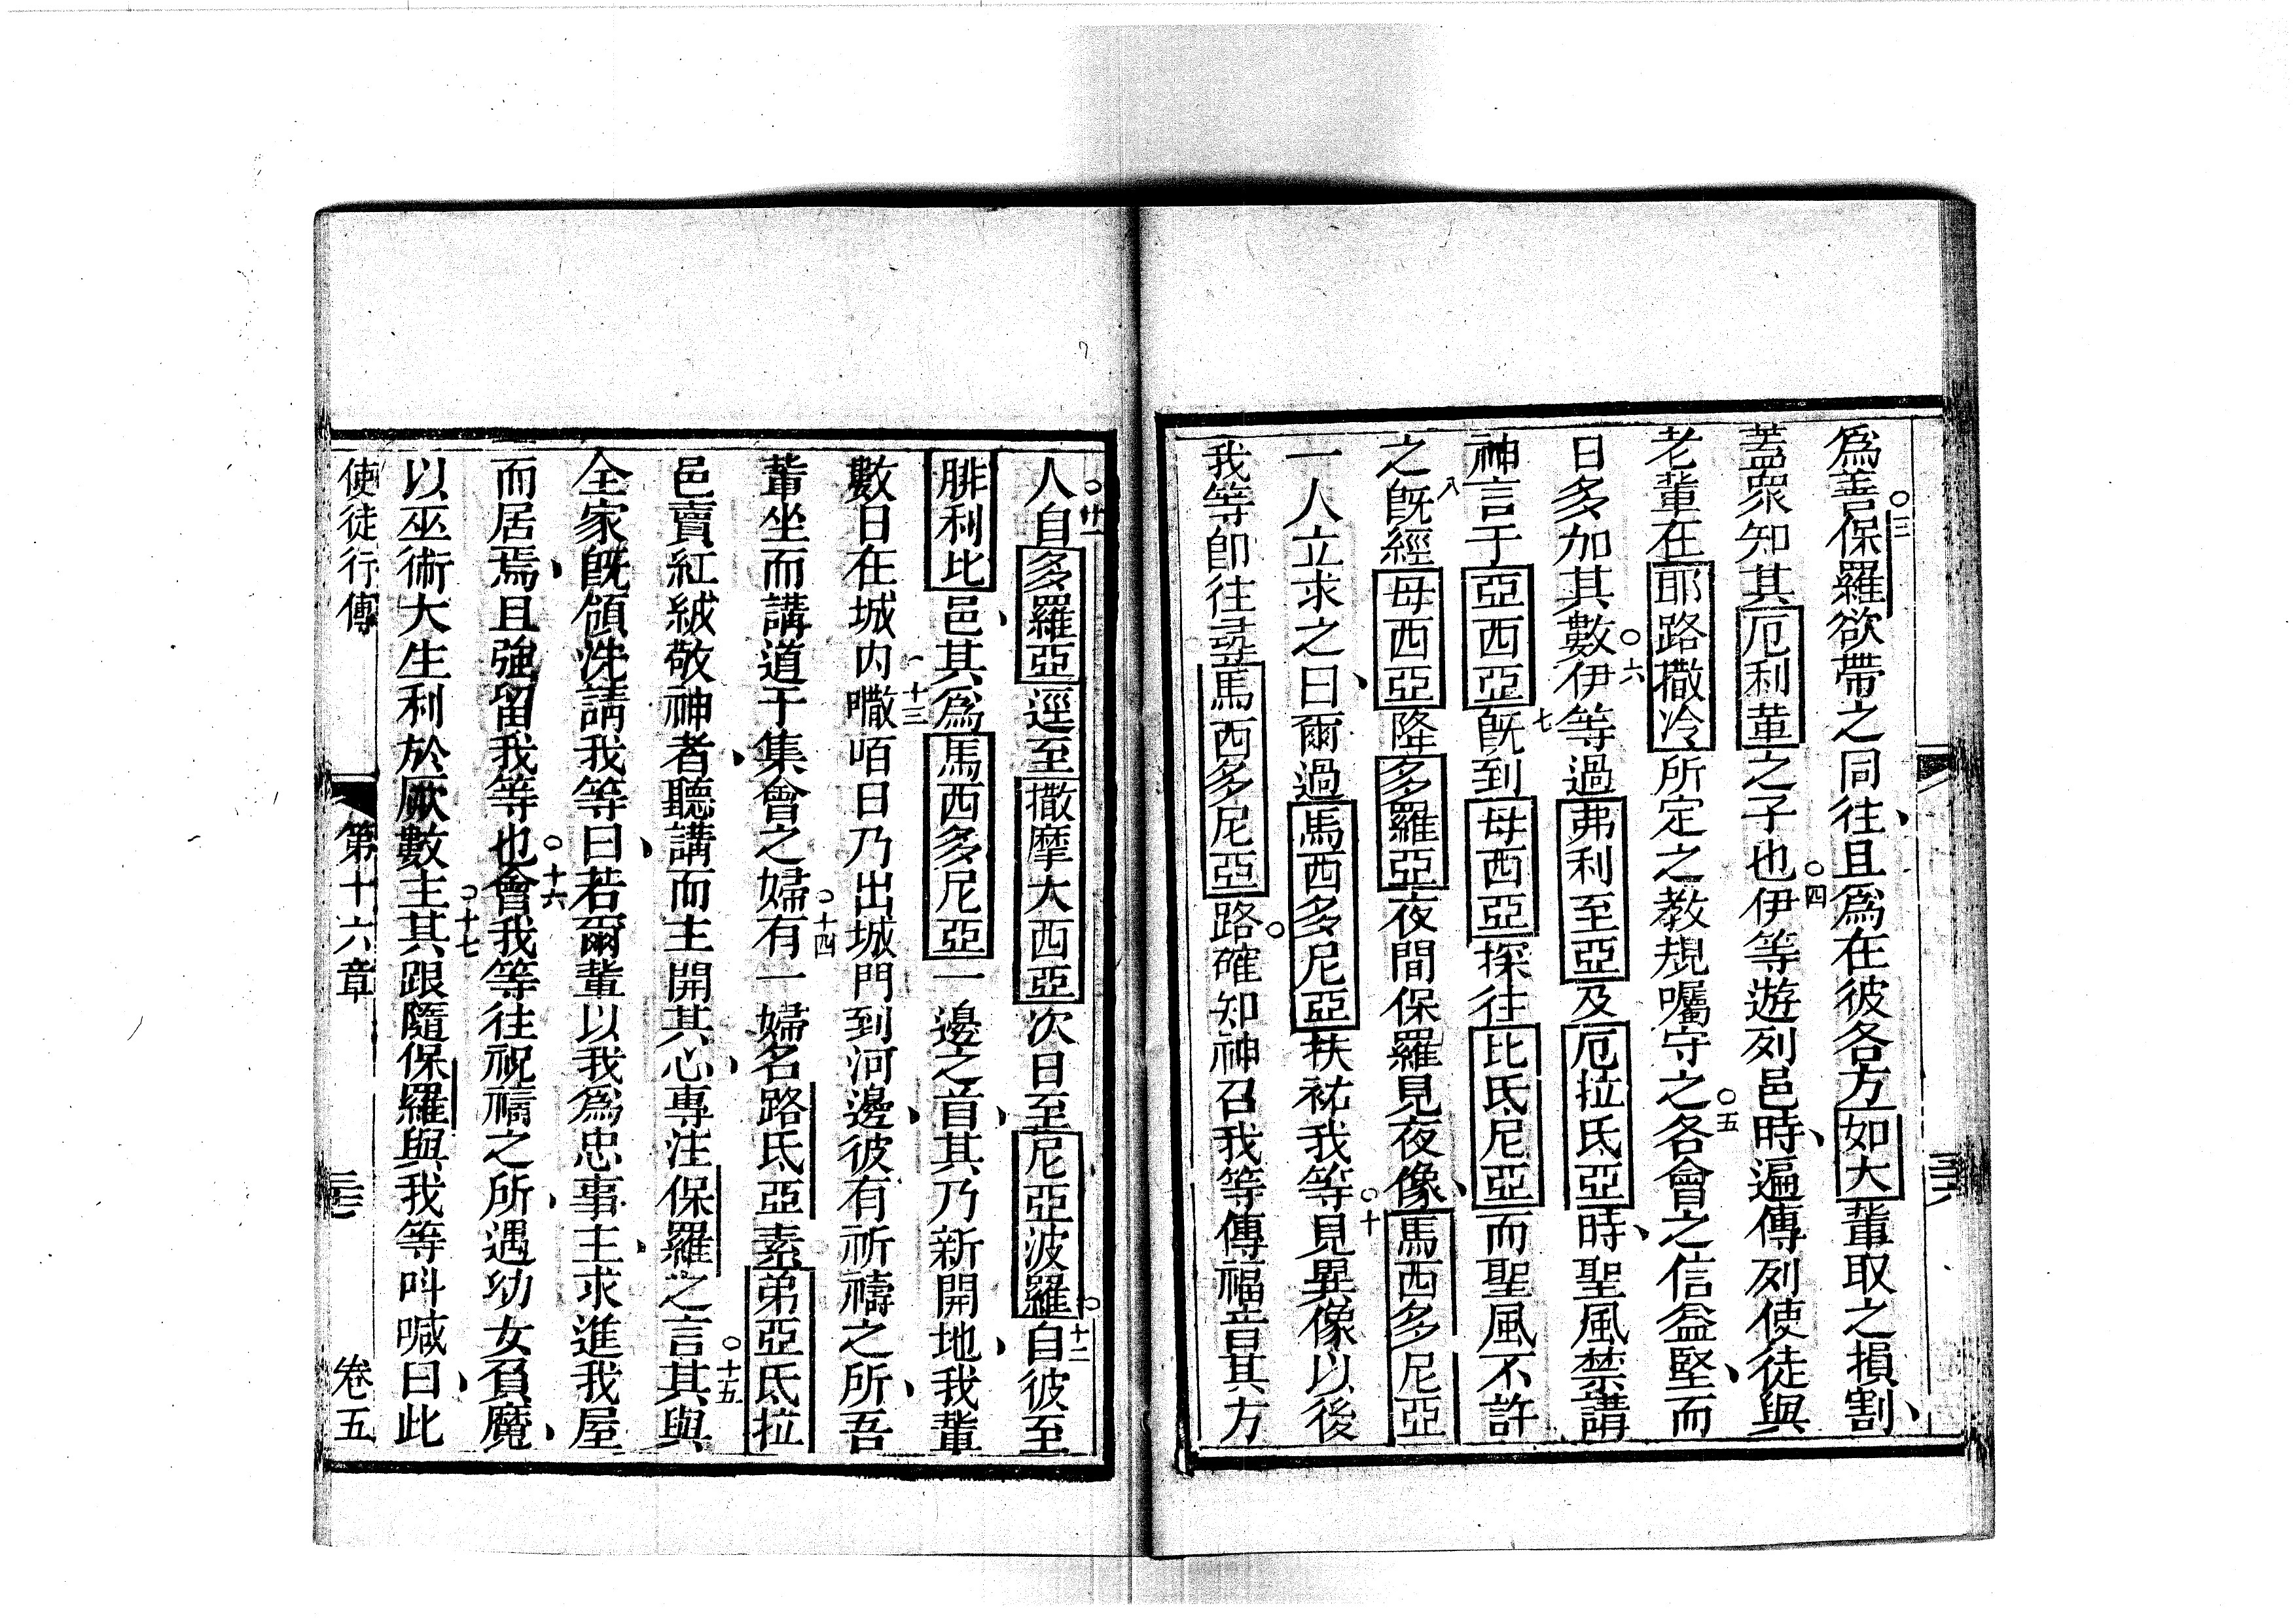 爲善○三保羅欲帶之同往、且爲在彼各方如大輩取之損割、
蓋眾知其厄利輩之子也○四伊等遊列邑時、遍傳列使徒與
老輩在耶路撒冷所定之教規囑守之○五各會之信益堅、而
日多加其數○六伊等過弗利至亞及厄拉氐亞時、聖風禁講
神言于亞西亞七旣到母西亞探往比氐尼亞而聖風不許
之八旣經母西亞降多羅亞夜間保羅見夜像、馬西多尼亞
一人立求之曰、爾過馬西多尼亞扶祐我等○十見異像以後
我等卽往尋馬西多尼亞路○確知神召我等傳福音其方
人○十一自多羅亞逕至撒摩大西亞次日至尼亞波羅○十二自彼至
腓利比邑、其爲馬西多尼亞一邊之首、其乃新開地、我輩
數日在城內十三嚫咟日乃出城門到河邊、彼有祈禱之所、吾
輩坐而講道于集會之婦○十四有一婦名路氐亞素弟亞氐拉
邑賣紅絨敬神者、聽講而主開其心、專注保羅之言○十五其與
全家旣領洗請我等曰、若爾輩以我爲忠事主、求進我屋
而居焉、且強留我等也○十六會我等往祝禱之所、遇幼女負魔、
以巫術大生利於厥數主○十七其跟隨保羅與我等叫喊曰、此
使徒行傳 第十六章 卷五